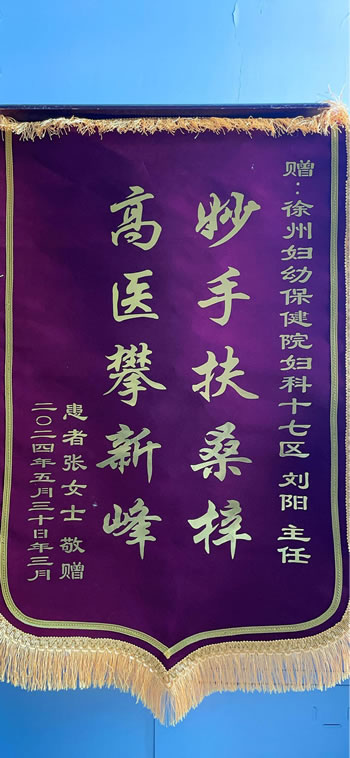 赠：徐州妇幼保健院妇科十七区 刘阳 主任
妙手扶桑梓
高医攀新峰
患者张女士 敬赠
二〇二四年五月三十日年三月